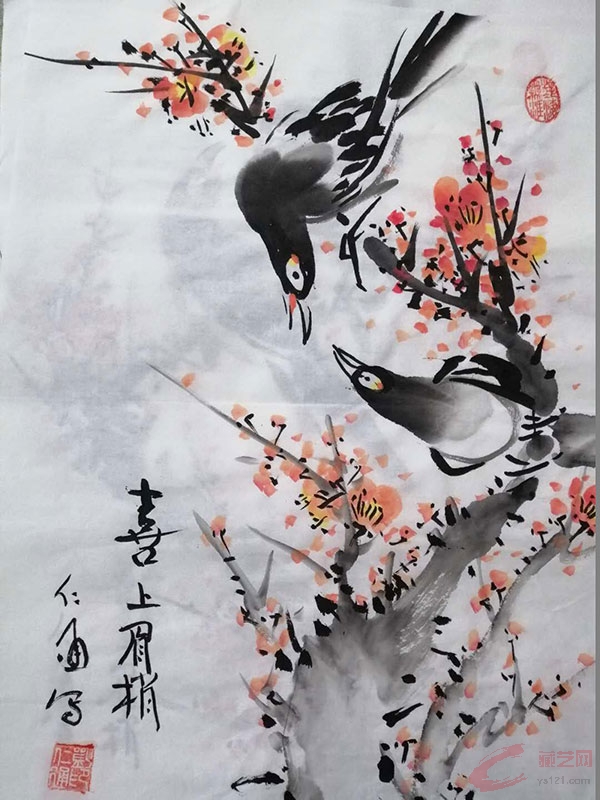 喜上眉梢
仁通写
藏艺网
ys121.com